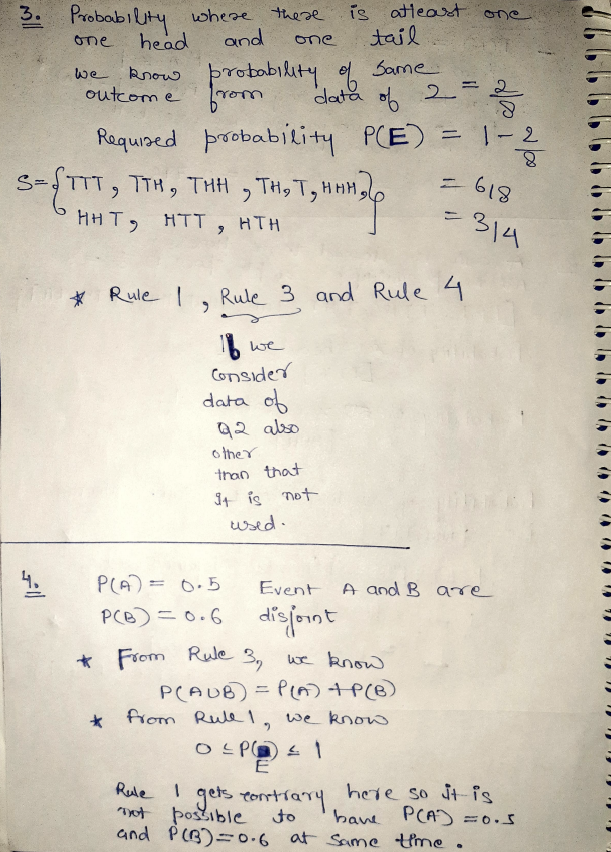 3. Probability where there is atleast one
one head and one tail
we know probability of same
outcome from data of 2 = 2/8
Required probability P(E) = 1 - 2/8
S = { TTT, TTH, THH, TH, T, HHH, = 6/8
HHT, HTT, HTH } = 3/4
* Rule 1, Rule 3 and Rule 4
If we
consider
data of
Q2 also
other
than that
It is not
used.
4. P(A) = 0.5 Event A and B are
P(B) = 0.6 disjoint
* From Rule 3, we know
P(AUB) = P(A) + P(B)
* from Rule 1, we know
0 ≤ P(E) ≤ 1
Rule 1 gets contriary here so it is
not possible to have P(A) = 0.5
and P(B) = 0.6 at same time.